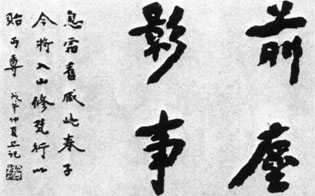 前塵
影事
息霜舊藏此卷子
今將入山修梵行以
貽丏尊 戊午仲夏并記